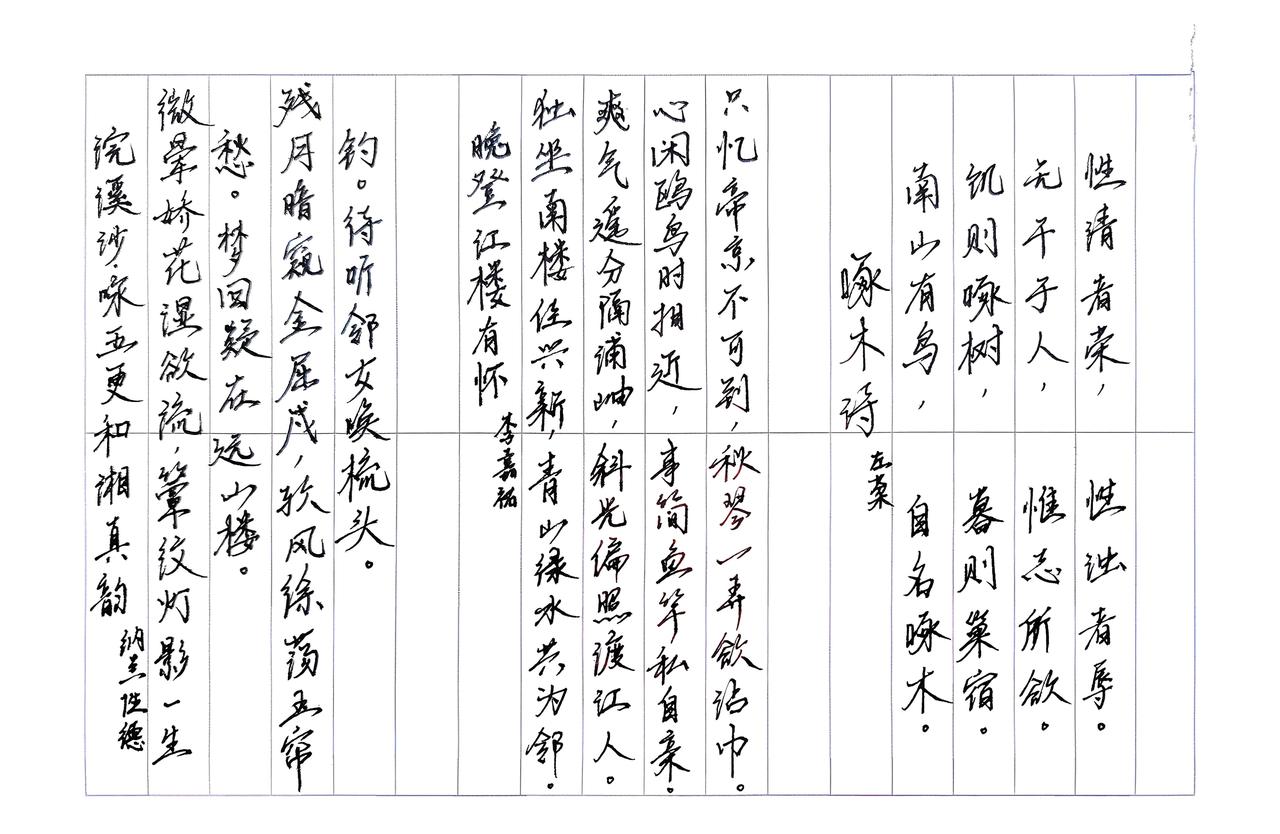 浣溪沙·咏五更和湘真韵
纳兰性德
微晕娇花湿欲流,簟纹灯影一生
愁。梦回疑在远山楼。
残月暗窥金屈戍,软风徐荡玉帘
钩。待听邻女唤梳头。
晚登江楼有怀
李嘉祐
独坐南楼佳兴新,青山绿水共为邻。
爽气遥分隔浦岫,斜光偏照渡江人。
心闲鸥鸟时相近,事简鱼竿私自亲。
只忆帝京不可到,秋琴一弄欲沾巾。
啄木诗
左棻
南山有鸟,自名啄木。
饥则啄树,暮则巢宿。
无干于人,惟志所欲。
性清者荣,性浊者辱。